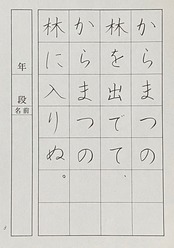 からまつの
林を出でて、
からまつの
林に入りぬ。
年
段
名前